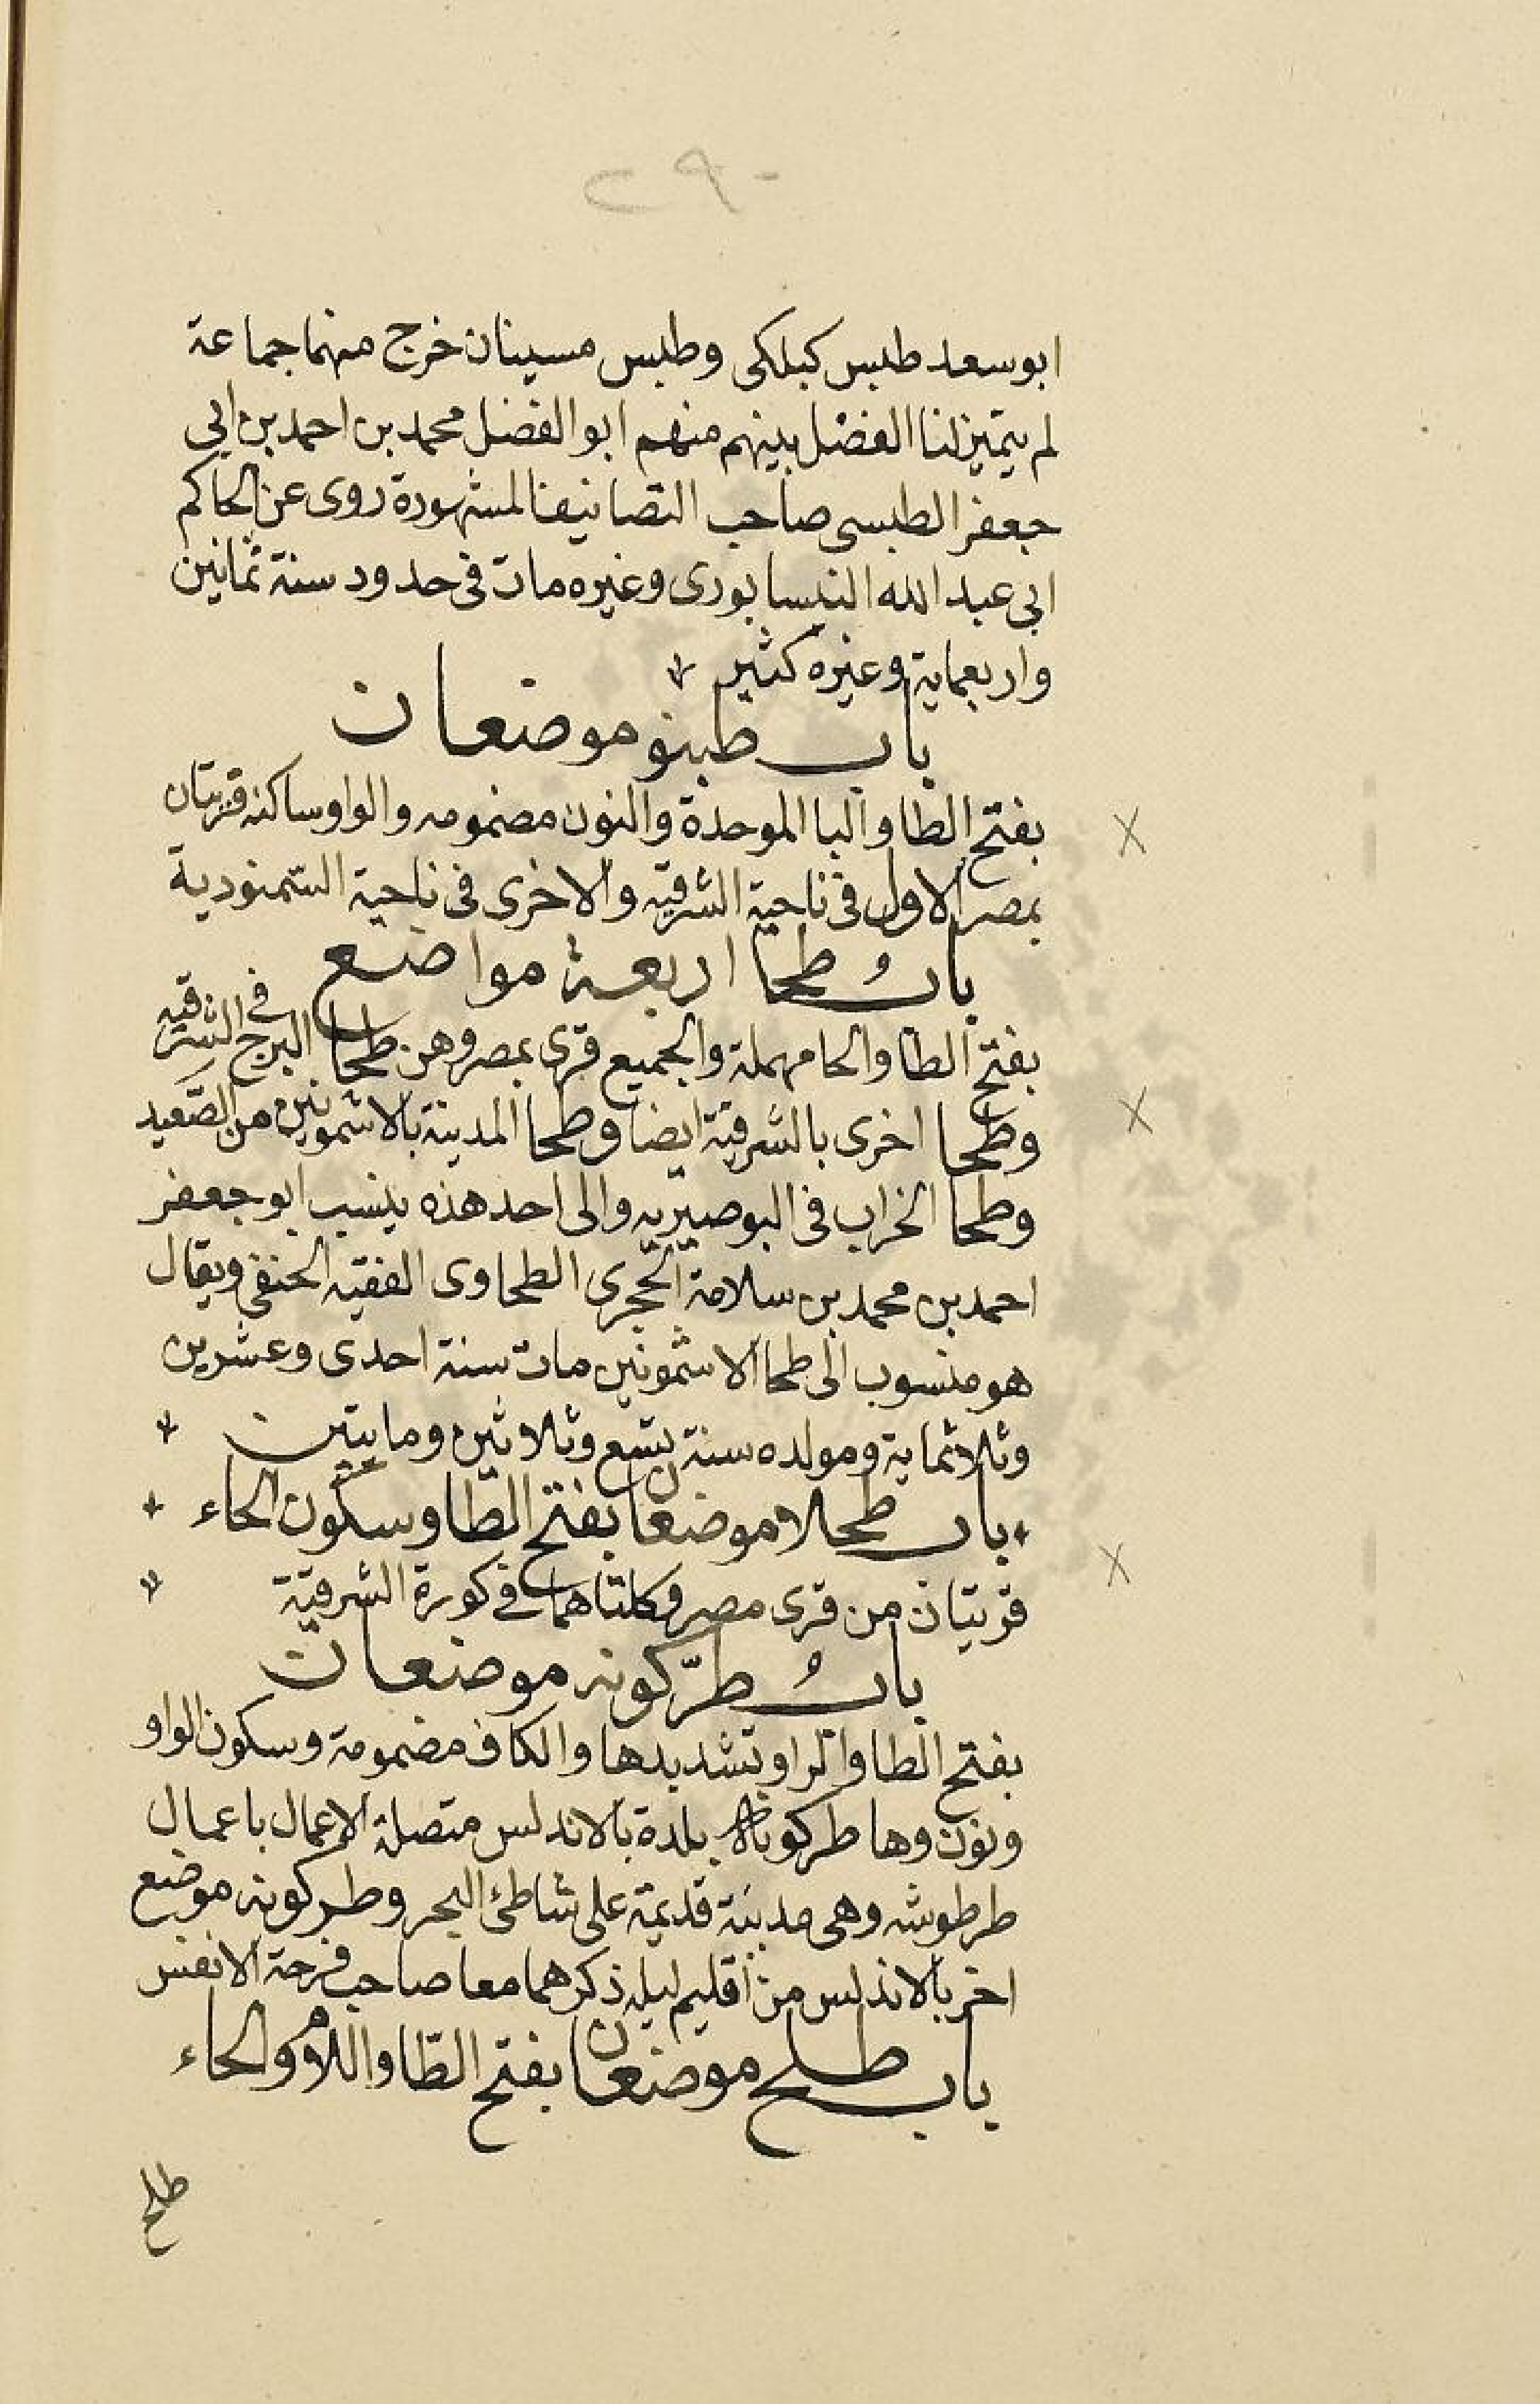 ابو سعد طبس كيلكى وطبس مسينان خرج منهما جماعة
لم يتميز لنا الفضل بينهم منهم ابو الفضل محمد بن احمد بن ابى
جعفر الطبسى صاحب التصانيف المشهورة روى عن الحاكم
ابى عبد الله النيسابورى وغيره مات فى حدود سنة ثمانين
واربعماية وغيره كثير
باب طبنو موضعان
بفتح الطا والبا الموحدة والنون مضمومه والواو ساكنه قريتان
بمصر الاول فى ناحية الشرقيه والاخرى فى ناحية السّمنودية
بابُ طحا اربعة مواضع
بفتح الطا والحا مهملة والجميع قرى بمصر وهن طحا البرج فى الشرقيه
وطحا اخرى بالشرقية ايضا وطحا المدينة بالاشمونين من الصّعيد
وطحا الخراب فى البوصيريه والى احد هذه ينسب ابو جعفر
احمد بن محمد بن سلامة الحجرى الطحاوى الفقيه الحنفى ويقال
هو منسوب الى طحا الاشمونين مات سنة احدى وعشرين
وثلاثماية ومولده سنة تسع وثلاثين ومايتين
باب طحلا موضعان بفتح الطّا وسكون الحاء
قريتان من قرى مصر وكلتاهما فى كورة الشرقيّة
بابُ طرّكونه موضعان
بفتح الطا والرا وتشديدها والكاف مضمومة وسكون الواو
ونون وها طركونة بلدة بالاندلس متصلة الاعمال باعمال
طرطوشه وهى مدينة قديمة على شاطئ البحر وطركونه موضع
اخر بالاندلس من اقليم لبله ذكرهما معا صاحب فرحة الانفس
باب طلح موضعان بفتح الطّا واللام والحاء
طلح